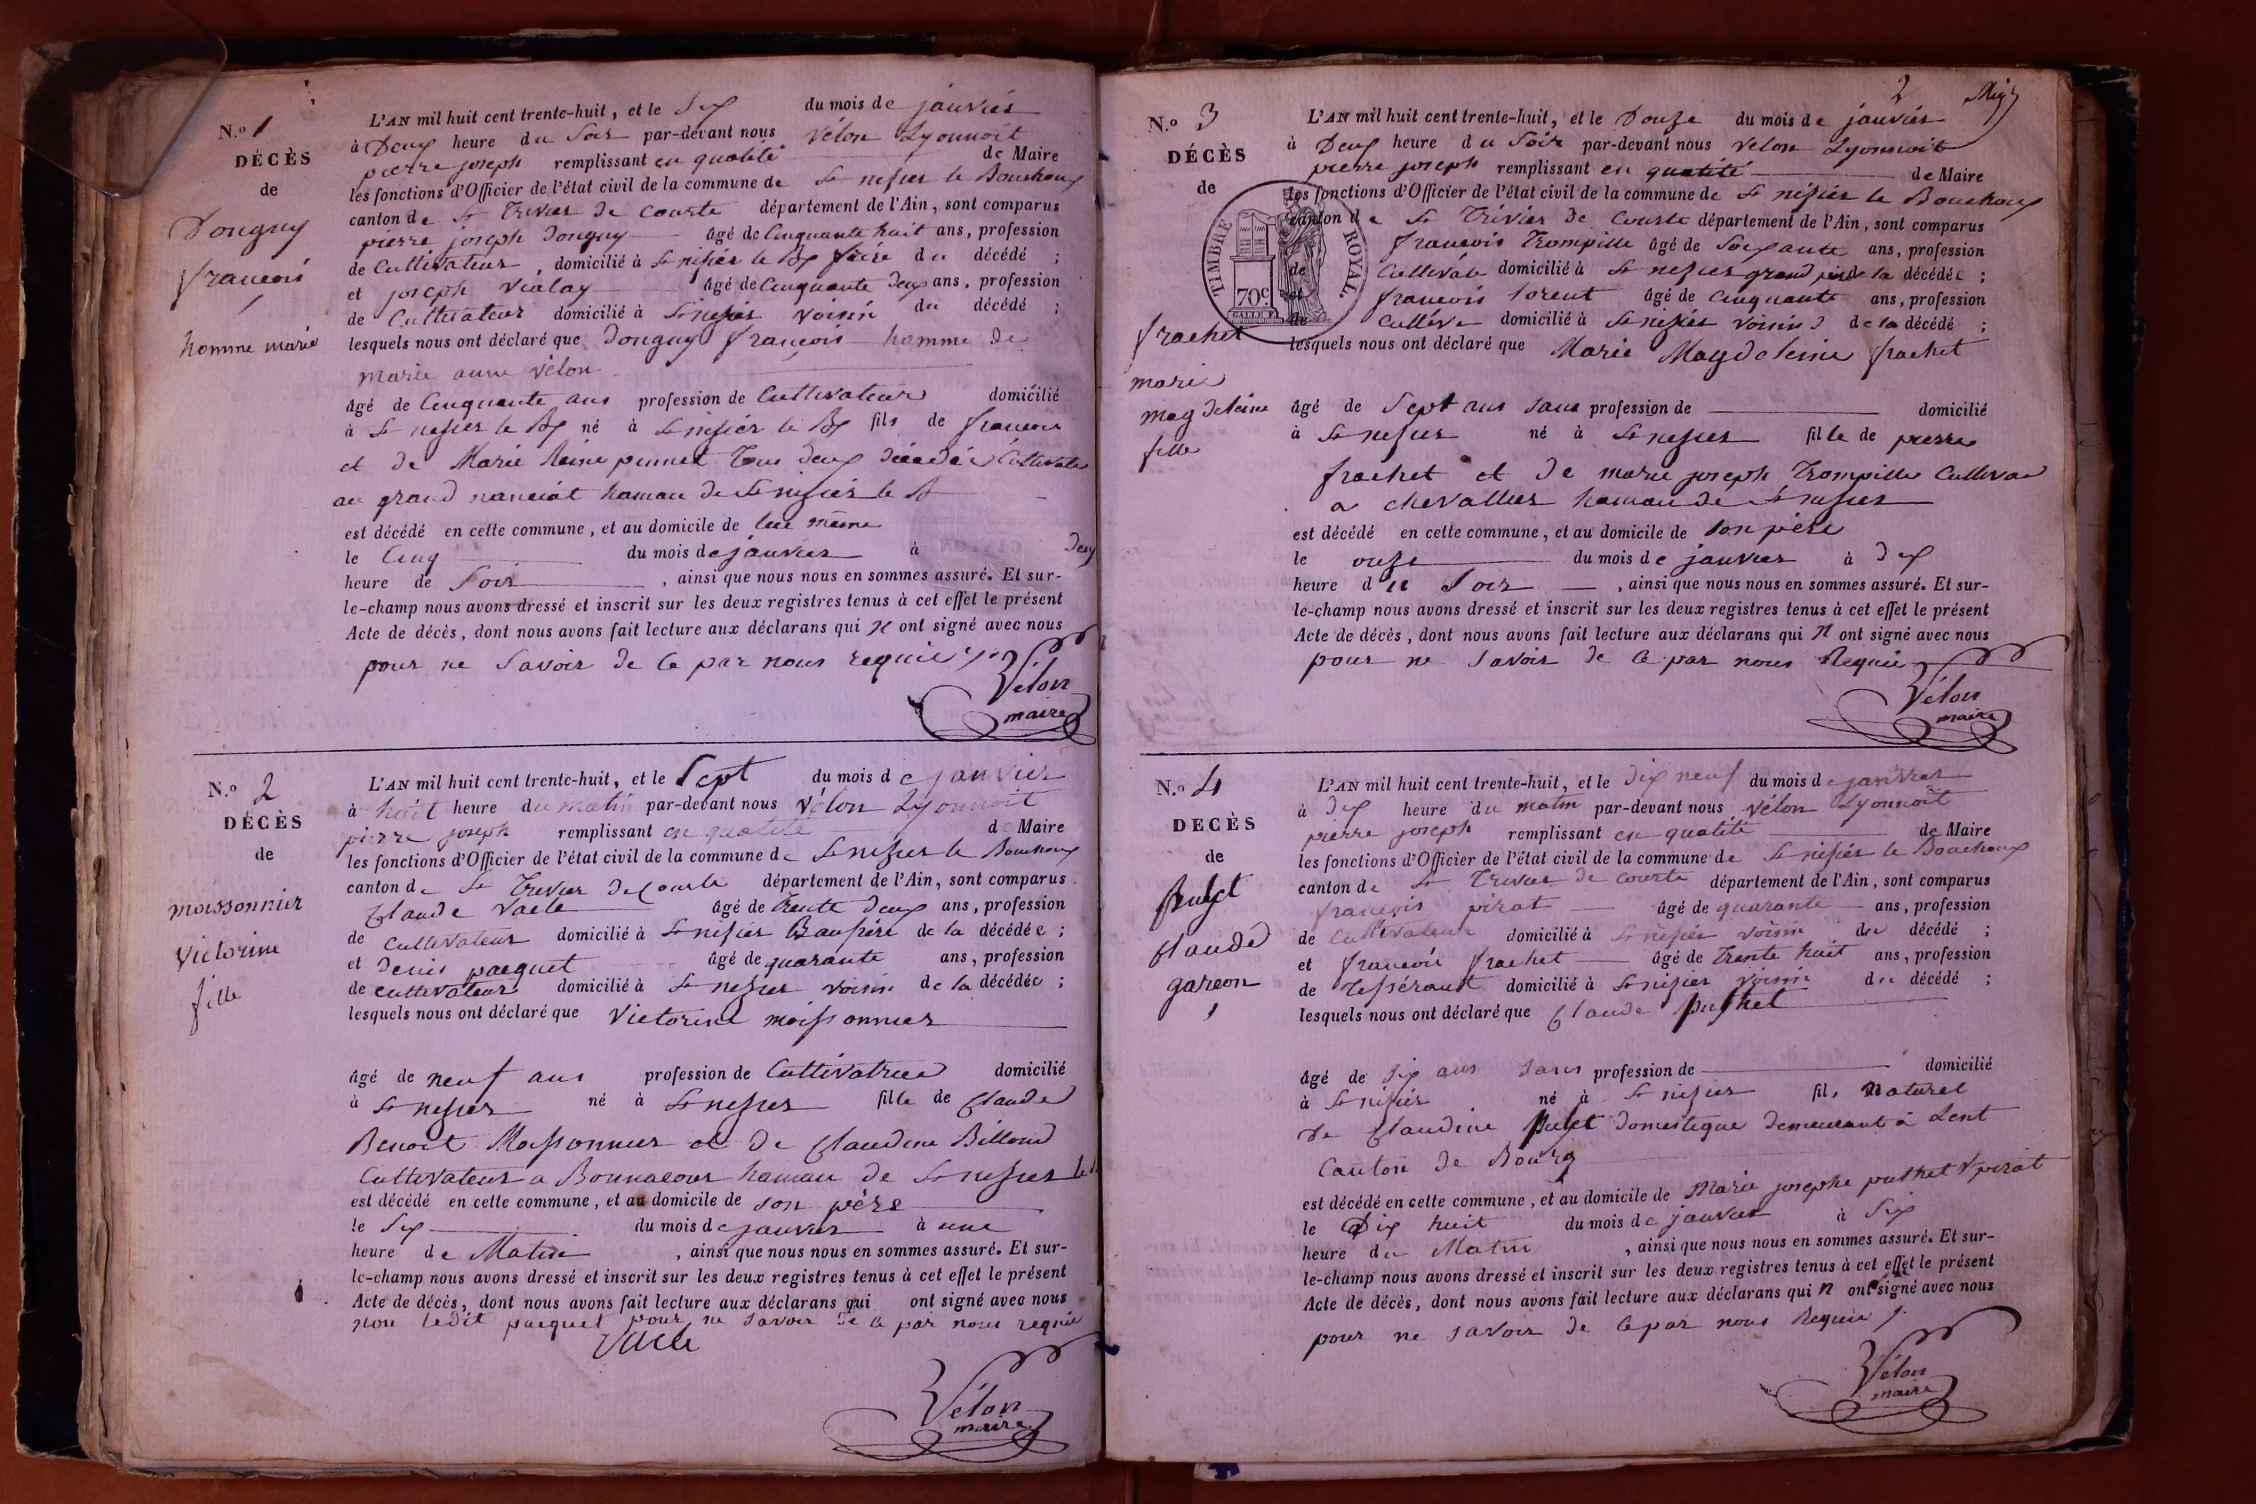 N.o 1
DÉCÈS
de
Dongny
françois
homme marié
L'AN mil huit cent trente-huit, et le Six du mois de janvier
à Deux heure du Soir par-devant nous Vélon Lyonnoit
pierre joseph remplissant en qualité de Maire
les fonctions d'Officier de l'état civil de la commune de St nisier le Bouchoux
canton de St Trivier de Courte département de l'Ain, sont comparus
pierre joseph Dongny âgé de Cinquante huit ans, profession
de Cultivateur, domicilié à St nisier le Bx frère du décédé ;
et joseph Vialay âgé de Cinquante Deux ans, profession
de Cultivateur domicilié à St nisier voisin du décédé ;
lesquels nous ont déclaré que Dongny françois homme de
marie anne vélon
âgé de Cinquante ans profession de Cultivateur domicilié
à St nisier le Bx né à St nisier le Bx fils de françois
et de Marie Reine pinnet Tous deux décédés Cultivate
au grand nanciat hamau de St nisier le B
est décédé en cette commune, et au domicile de lui même
le Cinq du mois de janvier à Deux
heure de Soir, ainsi que nous nous en sommes assuré. Et sur-
le-champ nous avons dressé et inscrit sur les deux registres tenus à cet effet le présent
Acte de décès, dont nous avons fait lecture aux déclarans qui n ont signé avec nous
pour ne Savoir de ce par nous requis
Vélon
maire
N.o 2
DÉCÈS
de
moissonnier
Victorine
fille
L'AN mil huit cent trente-huit, et le Sept du mois de janvier
à huit heure du matin par-devant nous Vélon Lyonnoit
pierre joseph remplissant en qualité de Maire
les fonctions d'Officier de l'état civil de la commune de St nisier le Bouchoux
canton de St Trivier de Courte département de l'Ain, sont comparus
Claude Vacle âgé de trente deux ans, profession
de Cultivateur domicilié à St nisier Baupère de la décédée ;
et Denis pacquet âgé de quarante ans, profession
de Cultivateur domicilié à St nisier voisin de la décédée ;
lesquels nous ont déclaré que Victorine moissonnier
âgé de neuf ans profession de Cultivatrice domicilié
à St nisier né à St nisier fille de Claude
Benoit Moissonnier et de Claudine Billoud
Cultivateur a Bonnacour hamau de St nisier le B
est décédé en cette commune, et au domicile de son père
le Six du mois de janvier à une
heure de Matin, ainsi que nous nous en sommes assuré. Et sur-
le-champ nous avons dressé et inscrit sur les deux registres tenus à cet effet le présent
Acte de décès, dont nous avons fait lecture aux déclarans qui ont signé avec nous
non ledit pacquet pour ne Savoir de ce par nous requis
Vacle
Vélon
maire
2
N.o 3
DÉCÈS
de
TIMBRE ROYAL.
70c.
frachet
marie
magdeleine
fille
L'AN mil huit cent trente-huit, et le Douze du mois de janvier
à Deux heure du Soir par-devant nous Vélon Lyonnoit
pierre joseph remplissant en qualité de Maire
les fonctions d'Officier de l'état civil de la commune de St nisier le Bouchoux
canton de St Trivier de Courte département de l'Ain, sont comparus
françois Trompille âgé de Soixante ans, profession
de Cultivate domicilié à St nisier grand père de la décédée ;
et françois lorent âgé de Cinquante ans, profession
de Cultive domicilié à St nisier voisin de la décédé ;
lesquels nous ont déclaré que Marie Magdeleine frachet
âgé de Sept ans sans profession de domicilié
à St nisier né à St nisier fille de pierre
frachet et de marie joseph Trompille Cultiva
a chevallier hamau de St nisier
est décédé en cette commune, et au domicile de Son père
le onze du mois de janvier à dix
heure du Soir, ainsi que nous nous en sommes assuré. Et sur-
le-champ nous avons dressé et inscrit sur les deux registres tenus à cet effet le présent
Acte de décès, dont nous avons fait lecture aux déclarans qui n ont signé avec nous
pour ne Savoir de ce par nous Requis
Vélon
maire
N.o 4
DECÈS
de
Claude
garcon
L'AN mil huit cent trente-huit, et le dix neuf du mois de janvier
à dix heure du matin par-devant nous Vélon Lyonnoit
pierre joseph remplissant en qualité de Maire
les fonctions d'Officier de l'état civil de la commune de St nisier le Bouchoux
canton de St Trivier de Courte département de l'Ain, sont comparus
françois pirat âgé de quarante ans, profession
de Cultivateur domicilié à St nisier voisin du décédé ;
et françois frachet âgé de Trente huit ans, profession
de Tisserant domicilié à St nisier voisin du décédé ;
lesquels nous ont déclaré que Claude puthet
âgé de Six ans Sans profession de domicilié
à St nisier né à St nisier fils naturel
de Claudine domestique demeurant à Lent
Canton de Bourg
est décédé en cette commune, et au domicile de Marie josephe puthet V pirat
le Dix huit du mois de janvier à Six
heure du Matin, ainsi que nous nous en sommes assuré. Et sur-
le-champ nous avons dressé et inscrit sur les deux registres tenus à cet effet le présent
Acte de décès, dont nous avons fait lecture aux déclarans qui n ont signé avec nous
pour ne savoir de ce par nous Requis
Vélon
maire